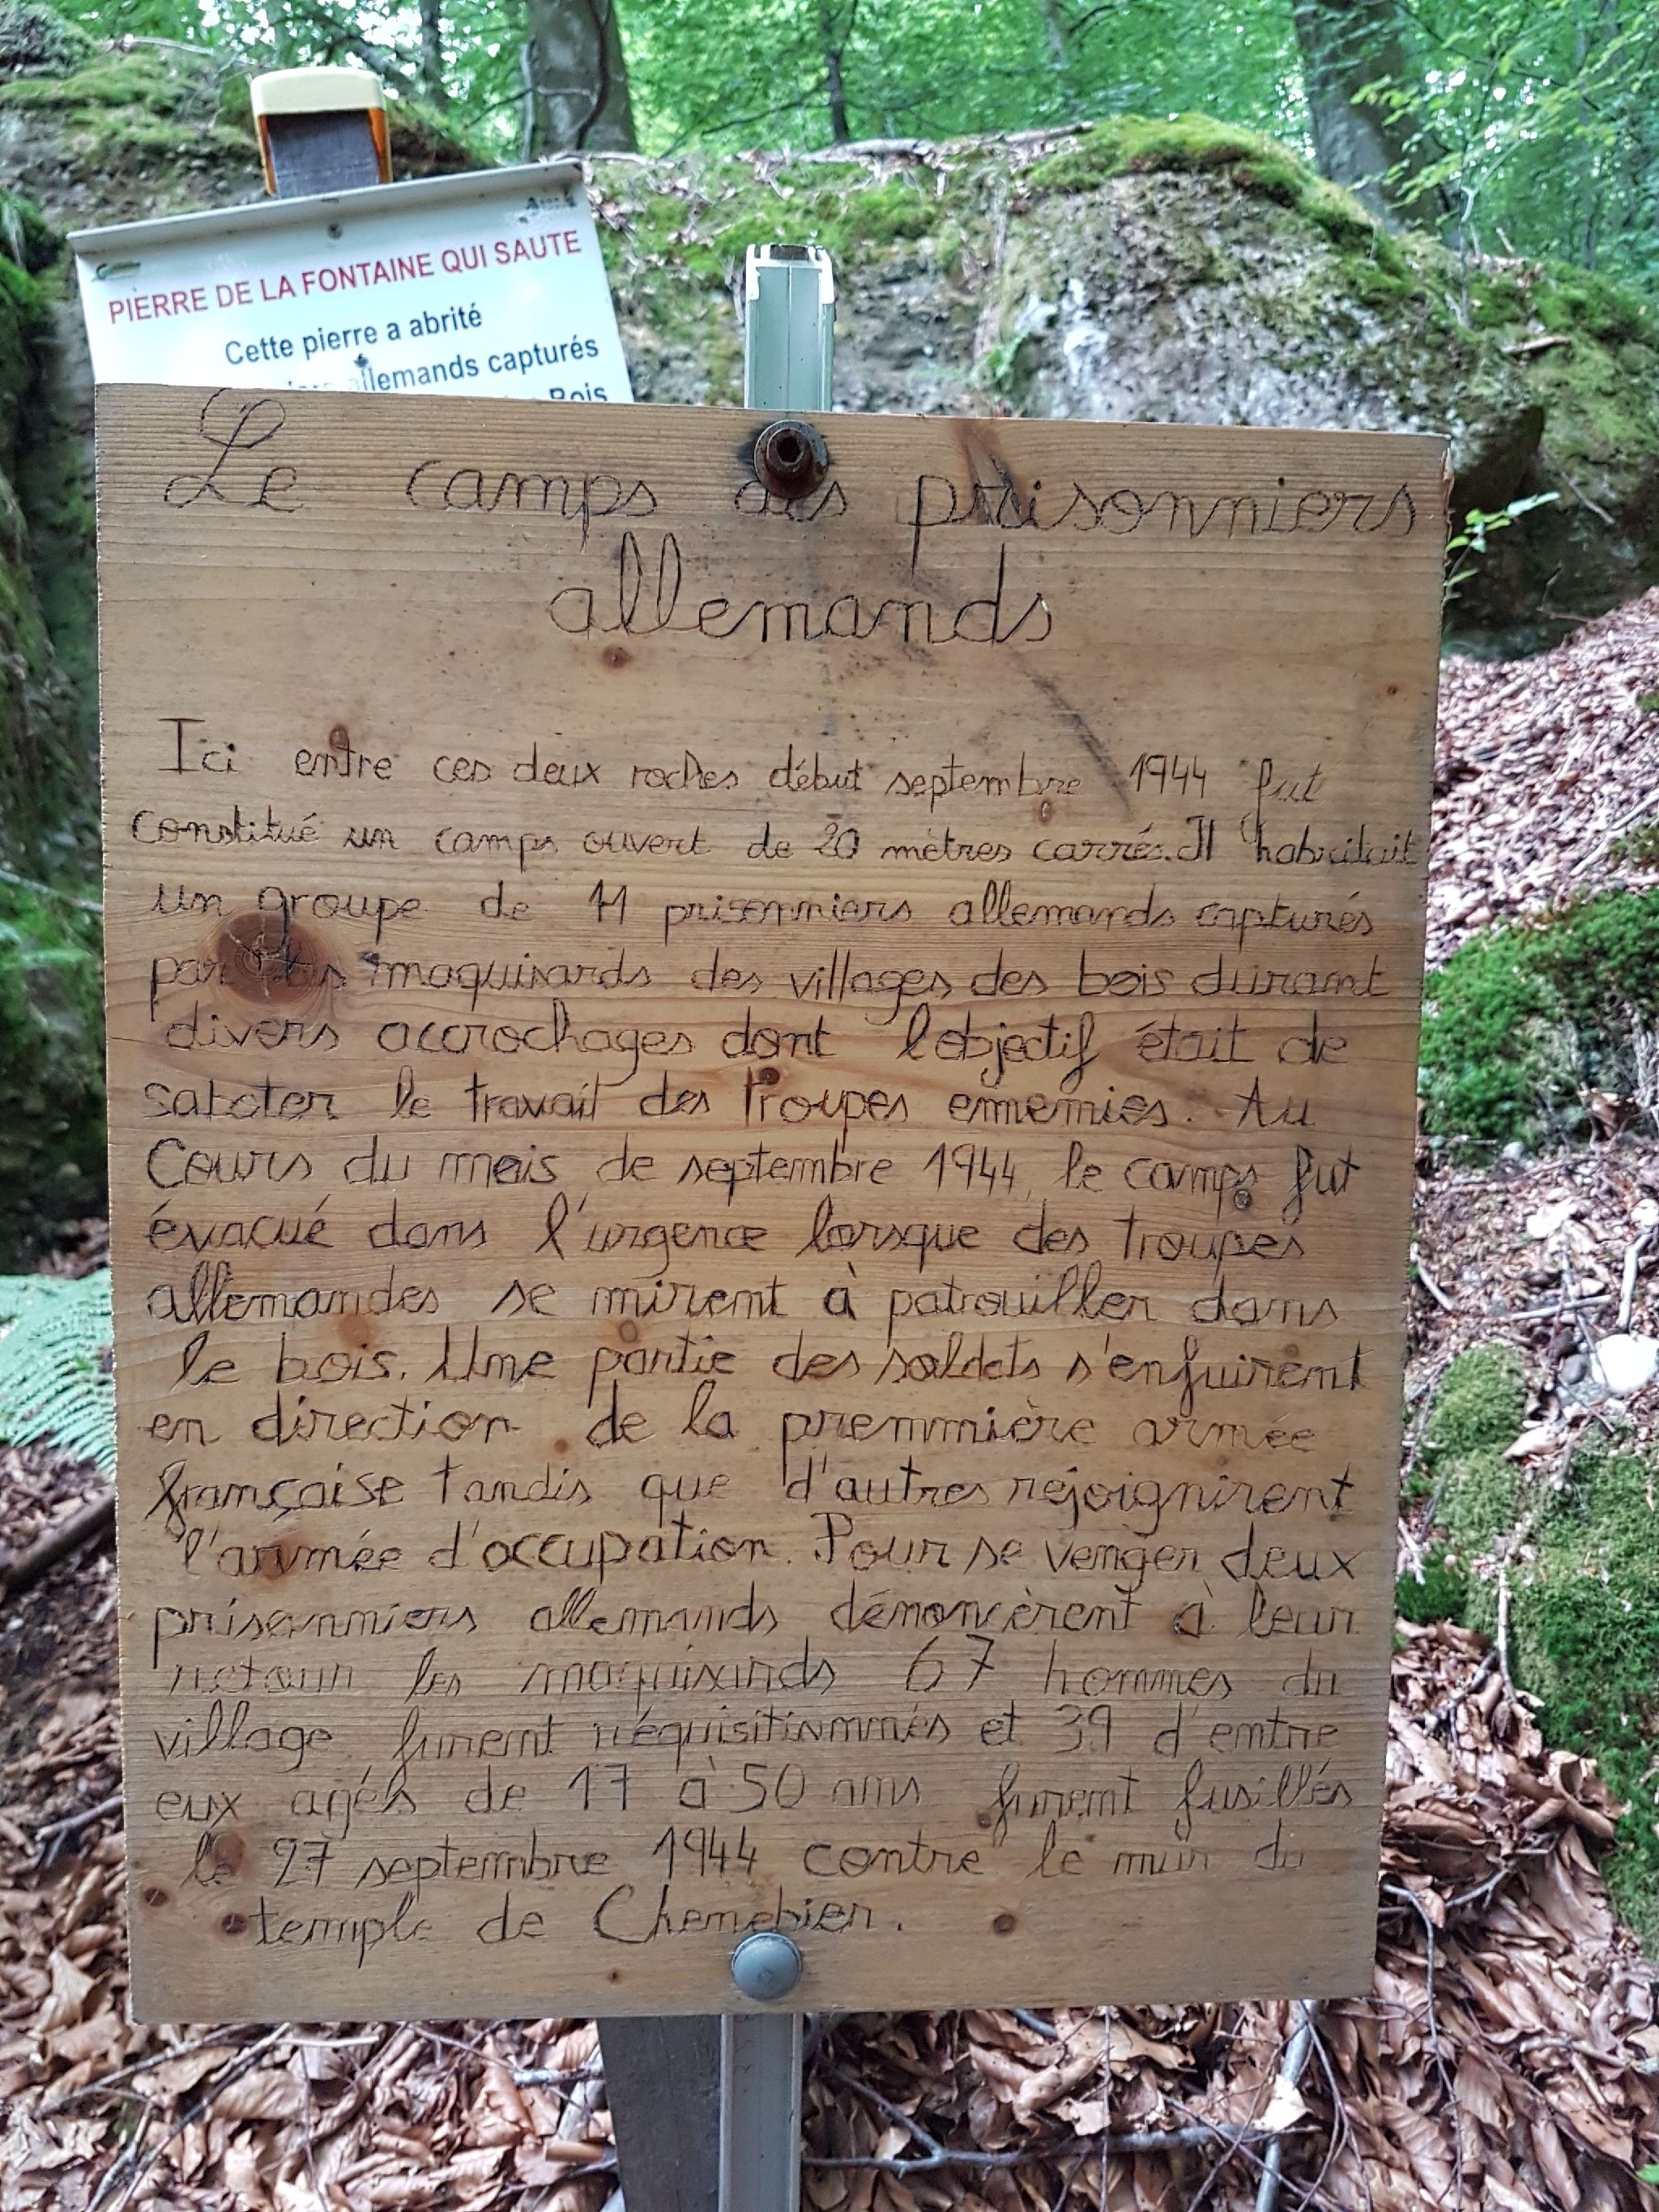 PIERRE DE LA FONTAINE QUI SAUTE
Cette pierre a abrité
allemands capturés
Bois
Le camps des prisonniers
allemands
Ici entre ces deux roches début septembre 1944 fut
constitué un camps ouvert de 20 mètres carrés. Il habritait
un groupe de 11 prisonniers allemands capturés
par les maquisards des villages des bois durant
divers accrochages dont l'objectif était de
saboter le travail des troupes ennemies. Au
Cours du mois de septembre 1944, le camps fut
évacué dans l'urgence lorsque des troupes
allemandes se mirent à patrouiller dans
le bois. Une partie des soldats s'enfuirent
en direction de la premmière armée
française tandis que d'autres rejoignirent
l'armée d'occupation. Pour se venger deux
prisonniers allemands dénoncèrent à leur
retour les maquisards 67 hommes du
village furent réquisitionnés et 39 d'entre
eux agés de 17 à 50 ans furent fusillés
le 27 septembre 1944 contre le mur du
temple de Chenebier.